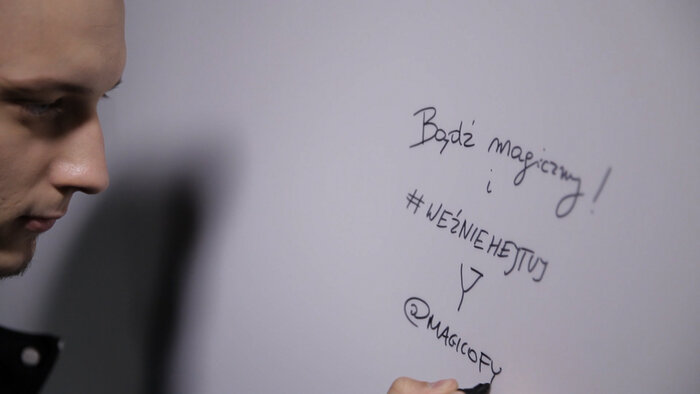 Bądź magiczny!
i
#WEŹNIEHEJTUJ
Y
@MAGICOFY